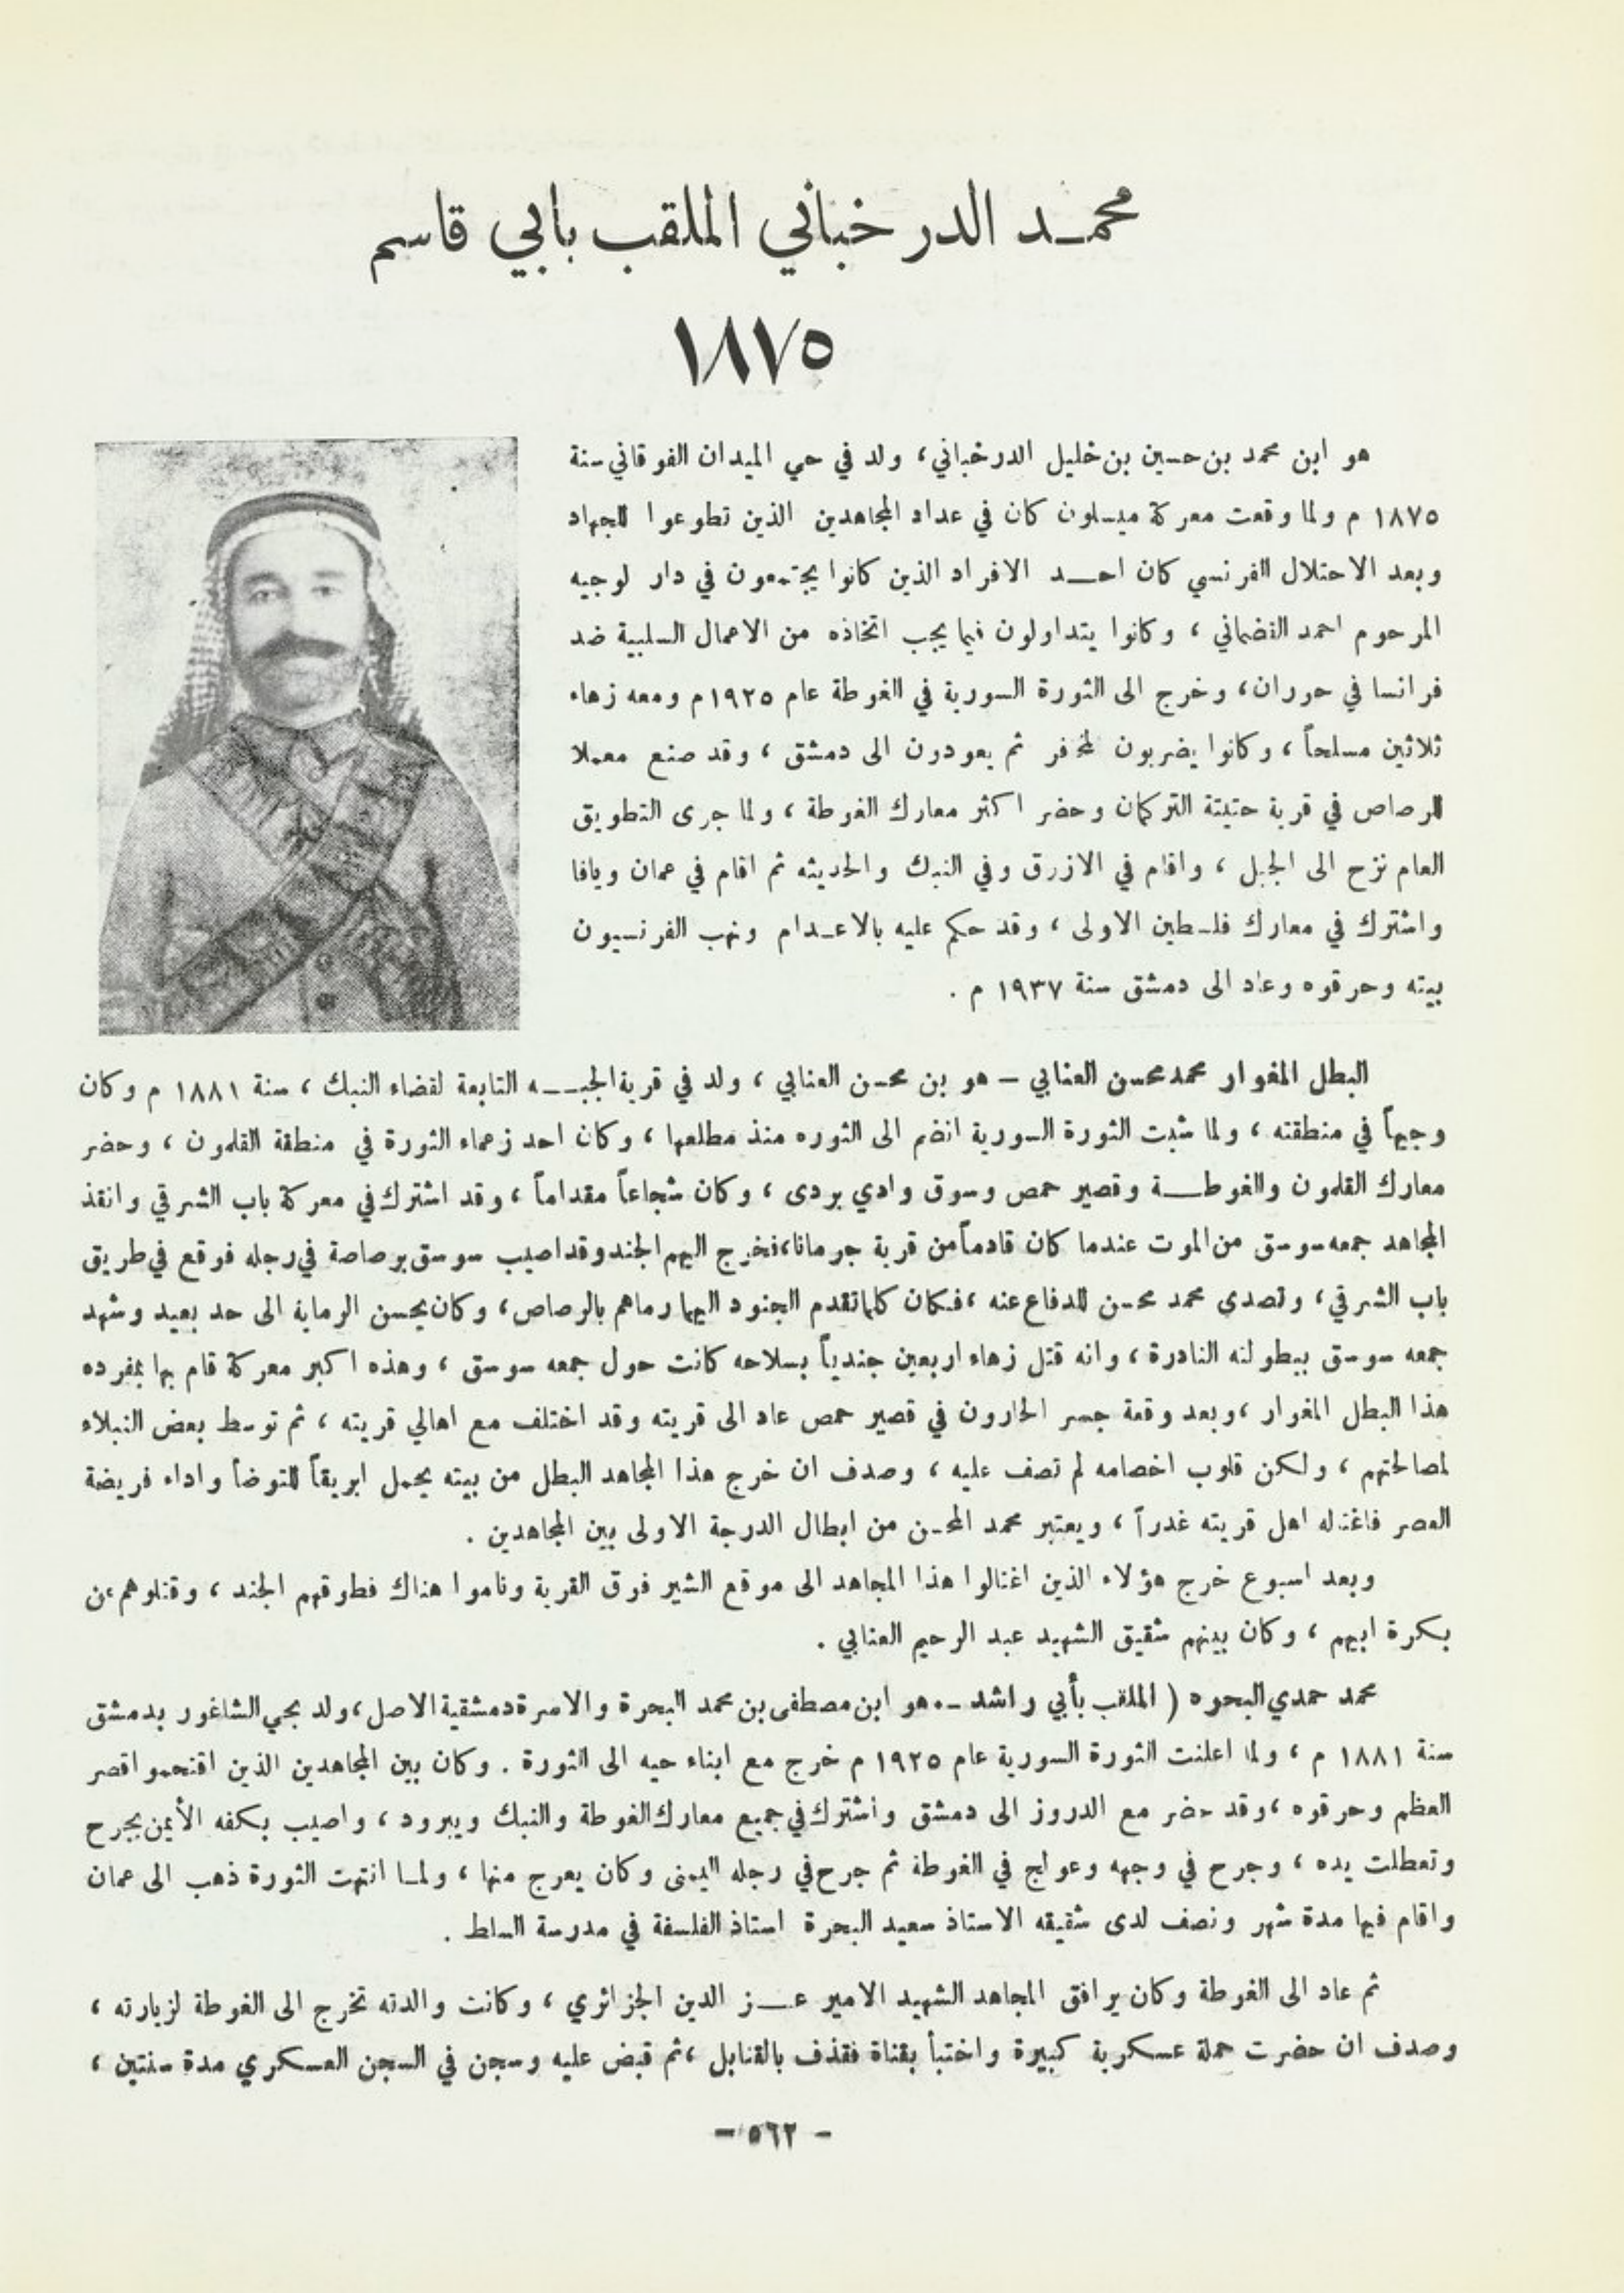 محمـد الدرخباني الملقب بأبي قاسم
١٨٧٥
هو ابن محمد بن حسين بن خليل الدرخباني، ولد في حي الميدان الفوقاني سنة
١٨٧٥ م ولما وقعت معركة ميسلون كان في عداد المجاهدين الذين تطوعوا للجهاد
وبعد الاحتلال الفرنسي كان احـد الافراد الذين كانوا يجتمعون في دار لوجيه
المرحوم احمد القضماني ، وكانوا يتداولون فيما يجب اتخاذه من الاعمال السلبية ضد
فرانسا في حوران، وخرج الى الثورة السورية في الغوطة عام ١٩٢٥ م ومعه زهاء
ثلاثين مسلحاً ، وكانوا يضربون لمخفر ثم يعودون الى دمشق ، وقد صنع معملا
للرصاص في قرية حتيتة التركمان وحضر اكثر معارك الغوطة ، ولما جرى التطويق
العام نزح الى الجبل ، واقام في الازرق وفي النبك والحديثه ثم اقام في عمان ويافا
واشترك في معارك فلسطين الاولى ، وقد حكم عليه بالاعـدام ونهب الفرنسيون
بيته وحرقوه وعاد الى دمشق سنة ١٩٣٧ م .
البطل المغوار محمد محسن العنابي – هو بن محسن العنابي ، ولد في قرية الجبـه التابعة لقضاء النبك ، سنة ١٨٨١ م وكان
وجيهاً في منطقته ، ولما شبت الثورة السورية انضم الى الثوره منذ مطلعها ، وكان احد زعماء الثورة في منطقة القلمون ، وحضر
معارك القلمون والغوطـة وقصير حمص وسوق وادي بردى ، وكان شجاعاً مقداماً ، وقد اشترك في معركة باب الشرقي وانقذ
المجاهد جمعه سوسق من الموت عندما كان قادماً من قرية جرمانا، فخرج اليهم الجند وقد اصيب سوسق برصاصة في رجله فوقع في طريق
باب الشرقي، وتصدى محمد محسن للدفاع عنه ، فكان كلما تقدم الجنود اليهما رماهم بالرصاص، وكان يحسن الرماية الى حد بعيد وشهد
جمعه سوسق ببطولته النادرة ، وانه قتل زهاء اربعين جندياً بسلاحه كانت حول جمعه سوسق ، وهذه اكبر معركة قام بها بمفرده
هذا البطل المغوار ، وبعد وقعة جسر الحارون في قصير حمص عاد الى قريته وقد اختلف مع اهالي قريته ، ثم توسط بعض النبلاء
لمصالحتهم ، ولكن قلوب اخصامه لم تصف عليه ، وصدف ان خرج هذا المجاهد البطل من بيته يحمل ابريقاً للتوضأ واداء فريضة
العصر فاغتاله اهل قريته غدراً ، ويعتبر محمد المحسن من ابطال الدرجة الاولى بين المجاهدين .
وبعد اسبوع خرج هؤلاء الذين اغتالوا هذا المجاهد الى موقع الشير فوق القرية وناموا هناك فطوقهم الجند ، وقتلوهم عن
بكرة ابيهم ، وكان بينهم شقيق الشهيد عبد الرحيم العنابي .
محمد حمدي البحره ( الملقب بأبي راشد – هو ابن مصطفى بن محمد البحرة والاسرة دمشقية الاصل ، ولد بحي الشاغور بدمشق
سنة ١٨٨١ م ، ولما اعلنت الثورة السورية عام ١٩٢٥ م خرج مع ابناء حيه الى الثورة . وكان بين المجاهدين الذين اقتحموا قصر
العظم وحرقوه ، وقد حضر مع الدروز الى دمشق واشترك في جميع معارك الغوطة والنبك ويبرود ، واصيب بكفه الأيمن بجرح
وتعطلت يده ، وجرح في وجهه وعولج في الغوطة ثم جرح في رجله اليمنى وكان يعرج منها ، ولمـا انتهت الثورة ذهب الى عمان
واقام فيها مدة شهر ونصف لدى شقيقه الاستاذ سعيد البحرة استاذ الفلسفة في مدرسة السلط .
ثم عاد الى الغوطة وكان يرافق المجاهد الشهيد الامير عـز الدين الجزائري ، وكانت والدته تخرج الى الغوطة لزيارته ،
وصدف ان حضرت حملة عسكرية كبيرة واختبأ بقناة فقذف بالقنابل ، ثم قبض عليه وسجن في السجن العسكري مدة سنتين ،
– ٥٦٢ –